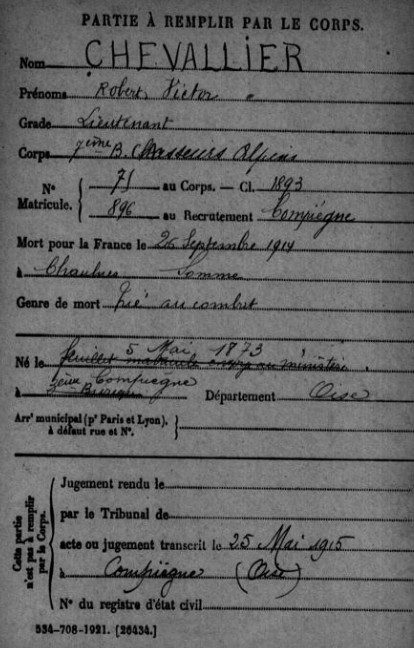 PARTIE À REMPLIR PAR LE CORPS.
Nom CHEVALLIER
Prénoms Robert, Victor
Grade Lieutenant
Corps 7ème B. Chasseurs Alpins
N° Matricule. { 71 au Corps. — Cl. 1893
896 au Recrutement Compiègne
Mort pour la France le 26 Septembre 1914
à Chaulnes Somme
Genre de mort Tué au combat
5 Mai 1873
Né le feuillet matricule au ministère
Compiègne
à Département Oise
Arrt municipal (pr Paris et Lyon), à défaut rue et N°. }
Cette partie n'est pas à remplir par le Corps. { Jugement rendu le
par le Tribunal de
acte ou jugement transcrit le 25 Mai 1915
à Compiègne (Oise)
N° du registre d'état civil
534-708-1921. [26434.]